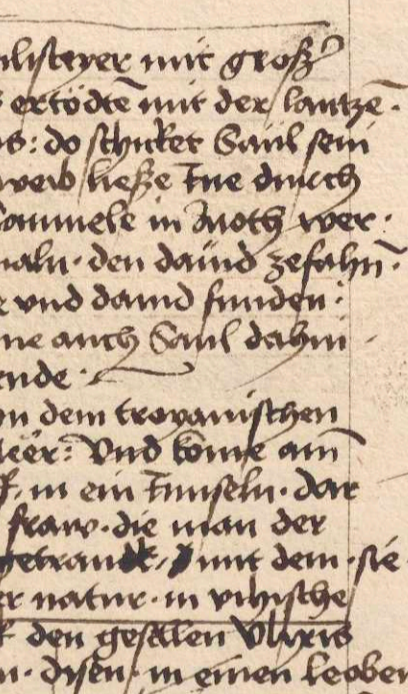 listeyer mit großer
ertödtē mit der lantzē.
s: do schicket Saül sein
weib ließe ine durch
Samuele in Naioth wer:
maln · den dauid zefahn̄ ·
e vnd dauid funden :
ne auch Saul dahin ·
ende ·
n dem troyanischen
eer: Vnd kōme am̄
in ein Innseln · dar
fraw · die man der
getranck, mit dem · sie
er natur · in vihische
den gesellen Vlixis
n · disen · in einen leoben